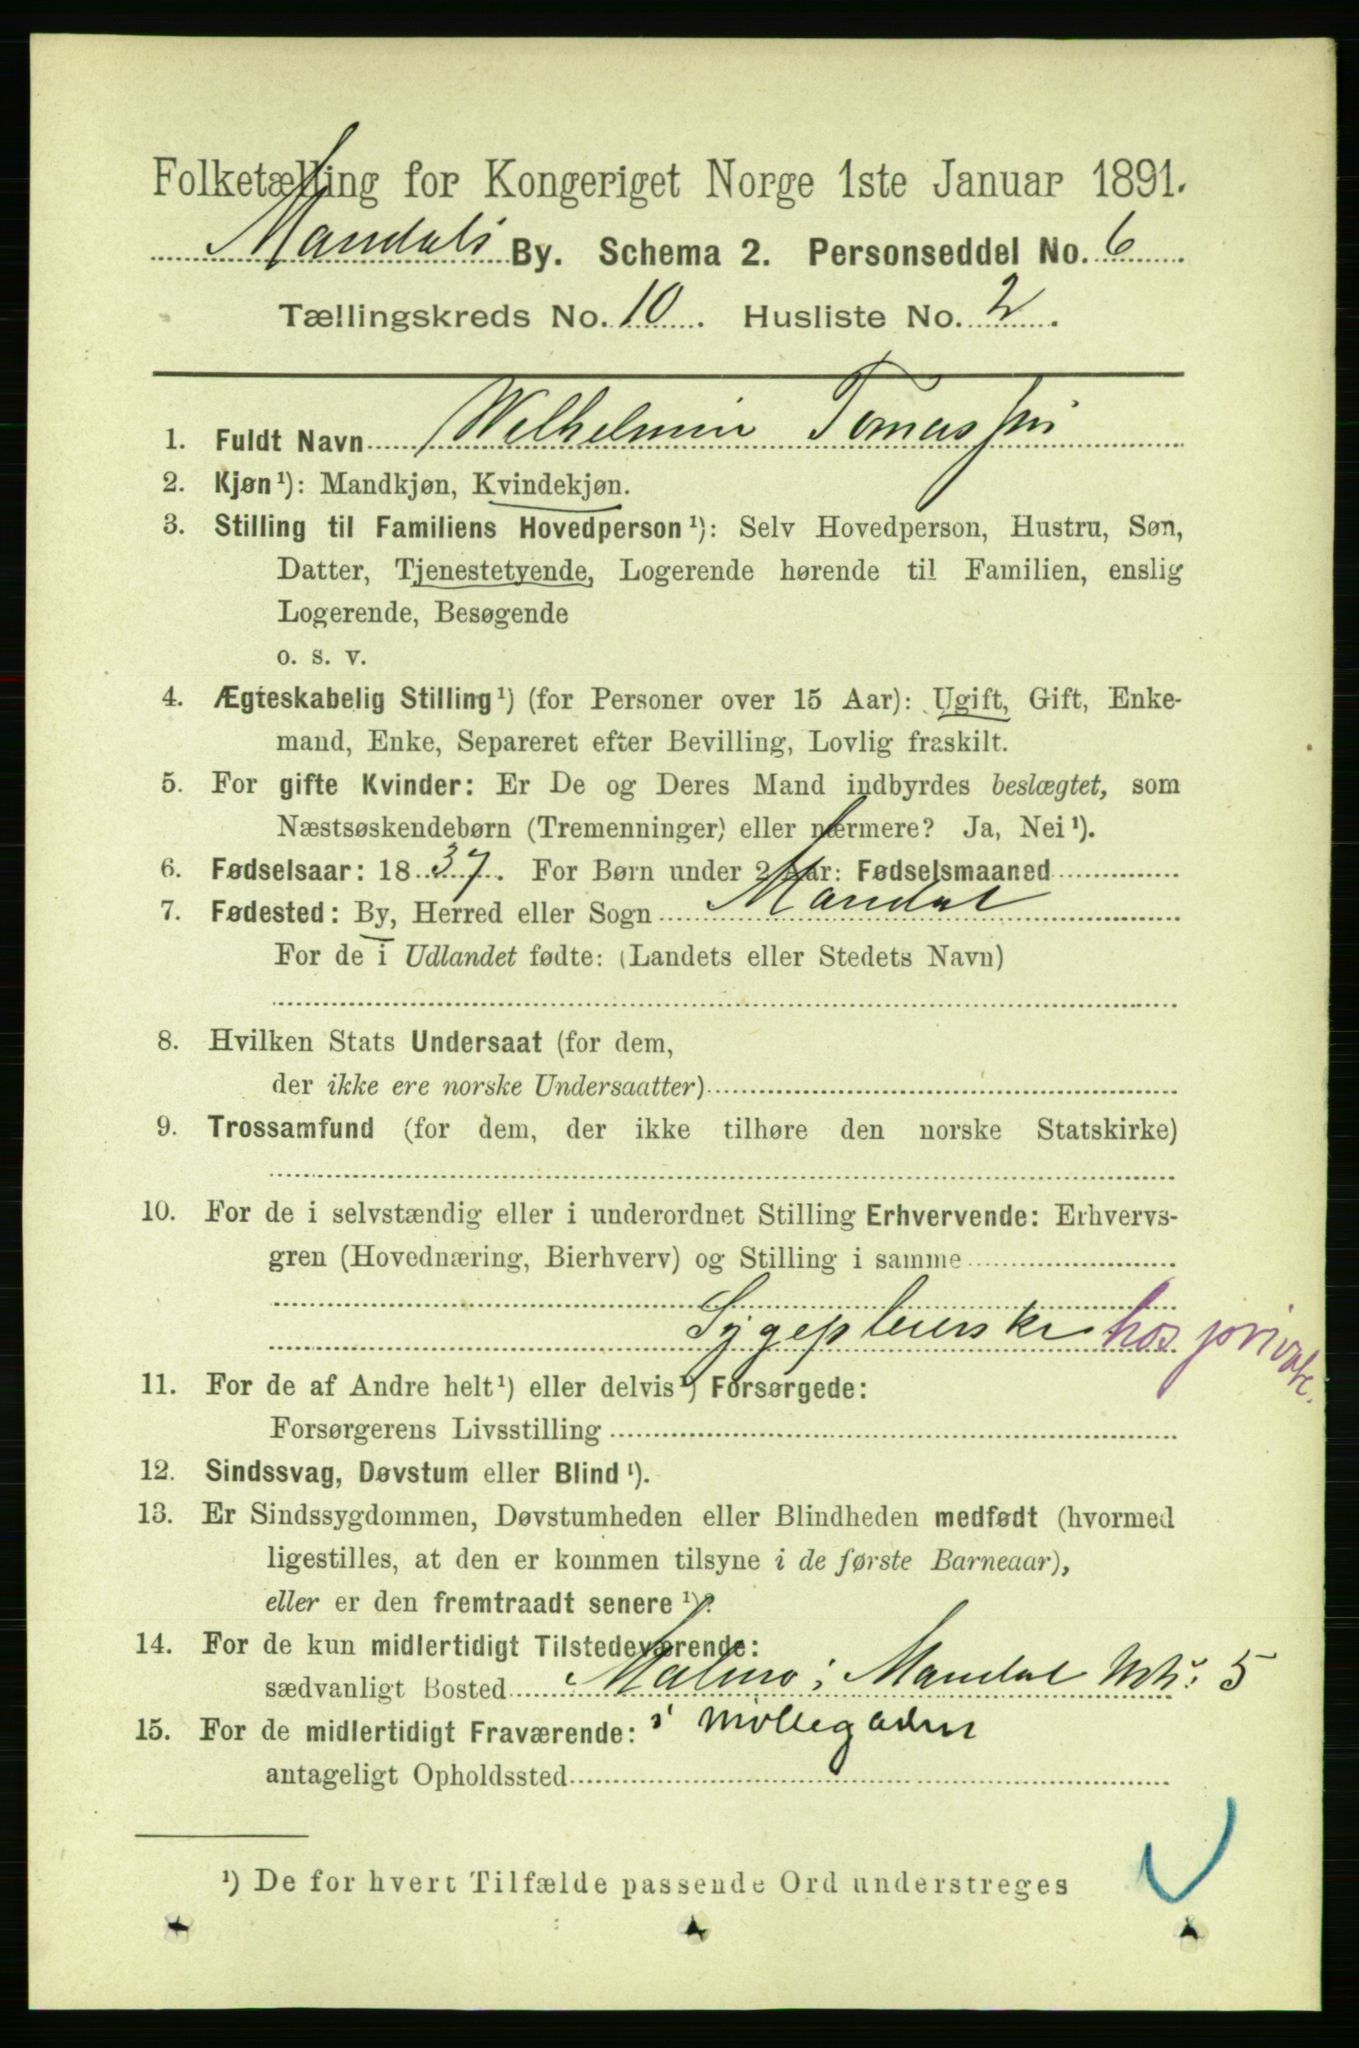 Folketælling for Kongeriget Norge 1ste Januar 1891.
Mandals By. Schema 2. Personseddel No. 6
Tællingskreds No. 10. Husliste No. 2.
1. Fuldt Navn Wilhelmin
2. Kjøn ¹): Mandkjøn, Kvindekjøn.
3. Stilling til Familiens Hovedperson ¹): Selv Hovedperson, Hustru, Søn,
Datter, Tjenestetyende, Logerende hørende til Familien, enslig
Logerende, Besøgende
o. s. v.
4. Ægteskabelig Stilling ¹) (for Personer over 15 Aar): Ugift, Gift, Enke-
mand, Enke, Separeret efter Bevilling, Lovlig fraskilt.
5. For gifte Kvinder: Er De og Deres Mand indbyrdes beslægtet, som
Næstsøskendebørn (Tremenninger) eller nærmere? Ja, Nei ¹).
6. Fødselsaar: 1837. For Børn under 2 Aar: Fødselsmaaned
7. Fødested: By, Herred eller Sogn Mandal
For de i Udlandet fødte: (Landets eller Stedets Navn)
8. Hvilken Stats Undersaat (for dem,
der ikke ere norske Undersaatter)
9. Trossamfund (for dem, der ikke tilhøre den norske Statskirke)
10. For de i selvstændig eller i underordnet Stilling Erhvervende: Erhvervs-
gren (Hovednæring, Bierhverv) og Stilling i samme
Sygepleierske hos private.
11. For de af Andre helt ¹) eller delvis ¹) Forsørgede:
Forsørgerens Livsstilling
12. Sindssvag, Døvstum eller Blind ¹).
13. Er Sindssygdommen, Døvstumheden eller Blindheden medfødt (hvormed
ligestilles, at den er kommen tilsyne i de første Barneaar),
eller er den fremtraadt senere ¹)?
14. For de kun midlertidigt Tilstedeværende:
sædvanligt Bosted Malmø i Mandal 5
15. For de midlertidigt Fraværende: i Møllegaden
antageligt Opholdssted
¹) De for hvert Tilfælde passende Ord understreges